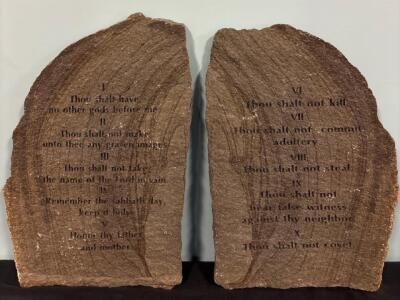 I
Thou shalt have
no other gods before me
II
Thou shalt not make
unto thee any graven images
III
Thou shalt not take
the name of the Lord in vain
IV
Remember the Sabbath day,
keep it holy
V
Honor thy father
and mother
VI
Thou shalt not kill
VII
Thou shalt not commit
adultery
VIII
Thou shalt not steal
IX
Thou shalt not
bear false witness
against thy neighbor
X
Thou shalt not covet